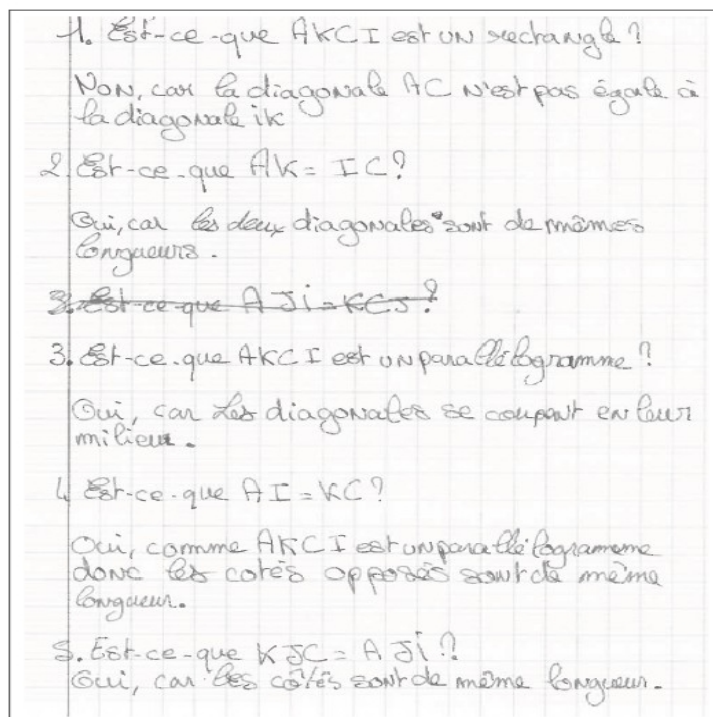 1. Est-ce-que AKCI est un rectangle ?
Non, car la diagonale AC n'est pas égale à
la diagonale ik
2. Est-ce-que AK = IC ?
Oui, car les deux diagonales sont de mêmes
longueurs.
3. Est-ce-que AJi = KCJ ?
3. Est-ce-que AKCI est un parallélogramme ?
Oui, car Les diagonales se coupent en leur
milieu.
4 Est-ce-que AI = KC ?
Oui, comme AKCI est un parallélogrameme
donc les cotés opposés sont de même
longueur.
5. Est-ce-que KJC = AJi ?
Oui, car les côtés sont de même longueur.